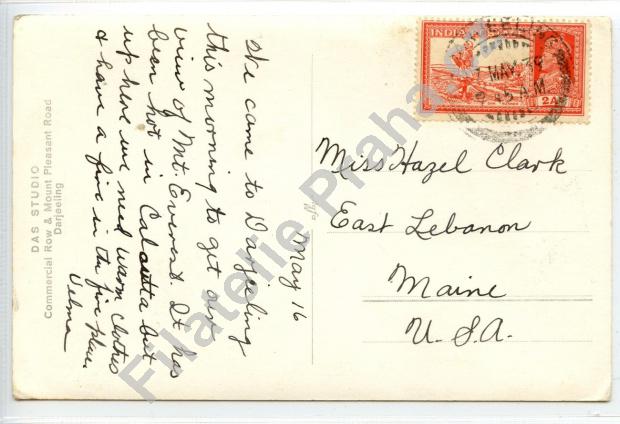 May 16
We came to Darjeeling
this morning to get our
view of Mt. Everest. It has
been hot in Calcutta but
up here we need warm clothes
& have a fire in the fire place.
Velma
DAS STUDIO
Commercial Row & Mount Pleasant Road
Darjeeling
INDIA
2A
7 MAY 39
45 A.M
Miss Hazel Clark
East Lebanon
Maine
U.S.A.
Filatelie Praha